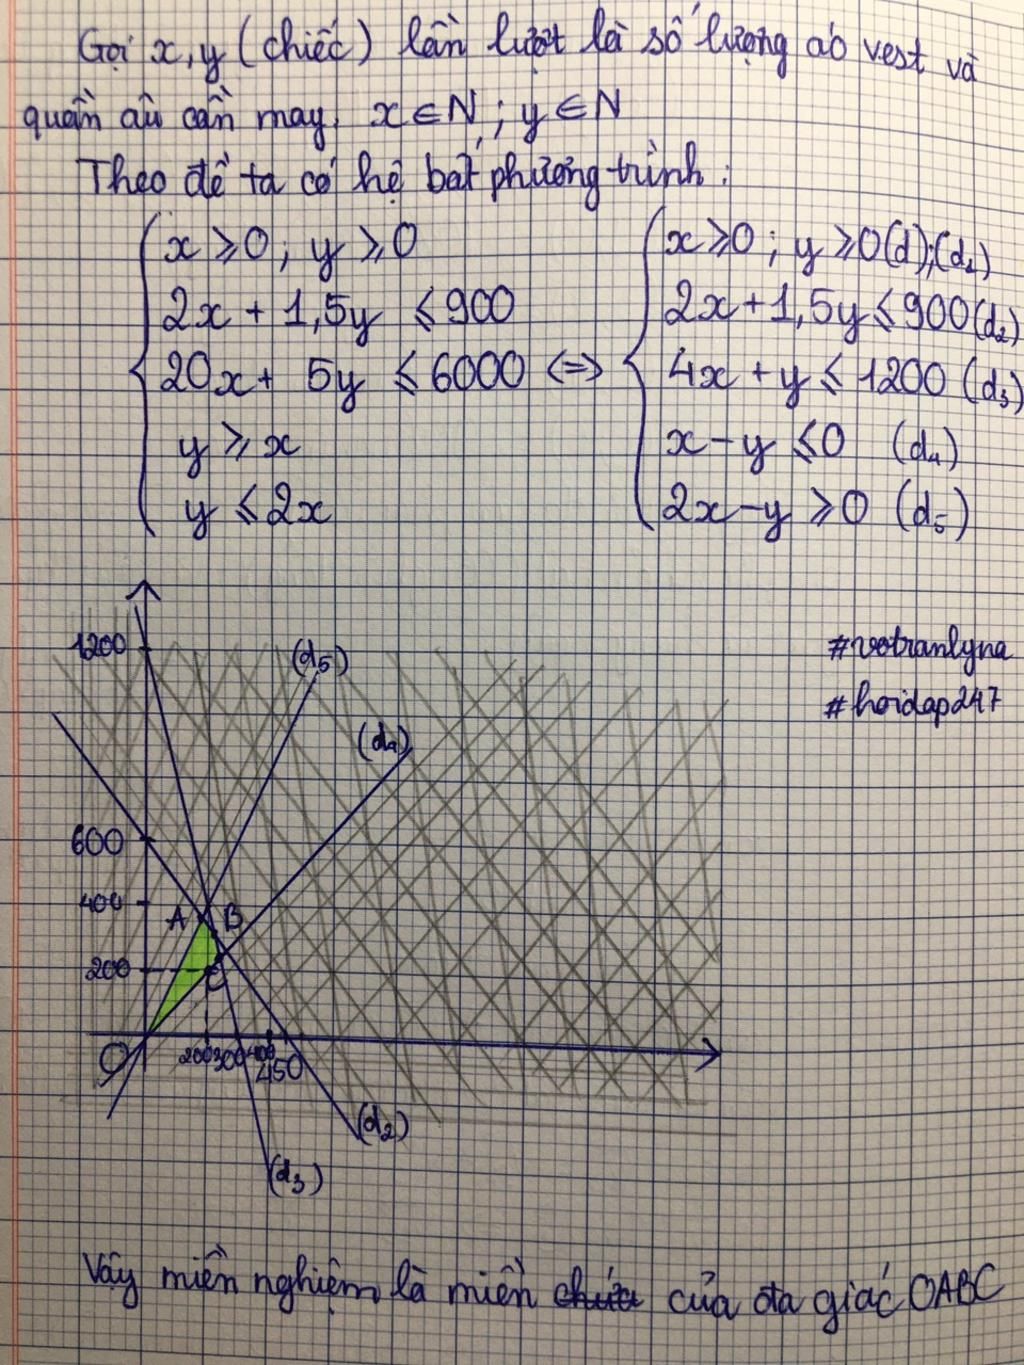 Gọi x, y (chiếc) lần lượt là số lượng áo vest và
quần âu cần may, x ∈ N ; y ∈ N
Theo đề ta có hệ bất phương trình :
x ≥ 0 ; y ≥ 0
2x + 1,5y ≤ 900
20x + 5y ≤ 6000 <=>
y ≥ x
y ≤ 2x
x ≥ 0 ; y ≥ 0 (d);(d₁)
2x + 1,5y ≤ 900 (d₂)
4x + y ≤ 1200 (d₃)
x - y ≤ 0 (d₄)
2x - y ≥ 0 (d₅)
1200
(d₅)
#votranlyna
#hoidap247
(d₄)
600
400
A B
200
C
O 200 300 400
450
(d₂)
(d₃)
Vậy miền nghiệm là miền của đa giác OABC